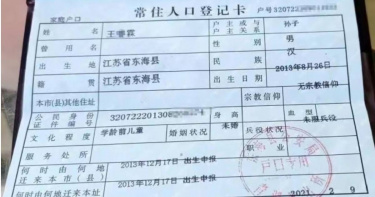 家庭户口
常住人口登记卡
户号
姓名 王睿宸 户主或与户主关系 孙子
曾用名 性别 男
出生地 江苏省东海县 民族 汉
籍贯 江苏省东海县 出生日期 2013年8月26日
本市(县)其他住址 宗教信仰 无宗教信仰
公民身份证件编号 身高 血型
文化程度 学龄前儿童 婚姻状况 未婚 兵役状况 未服兵役
服务处所 职业
何时由何地迁来本市(县) 2013年12月17日 出生申报
何时由何地迁来本址 2013年12月17日 出生申报
2021 2 9